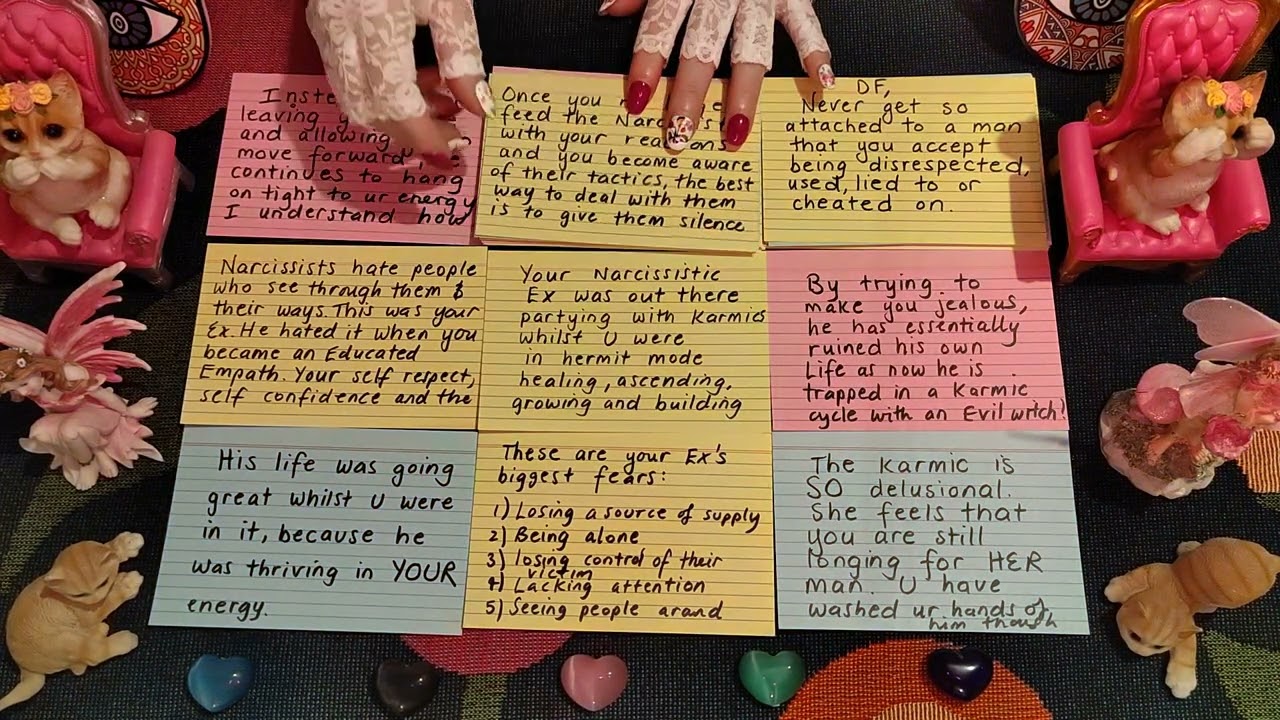 Inste
leaving y
and allowing
move forward,
continues to hang
on tight to ur energy
I understand how
Once you
feed the Narc
with your reactions
and you become aware
of their tactics, the best
way to deal with them
is to give them silence
DF,
Never get so
attached to a man
that you accept
being disrespected,
used, lied to or
cheated on.
Narcissists hate people
who see through them &
their ways. This was your
Ex. He hated it when you
became an Educated
Empath. Your self respect,
self confidence and the
Your Narcissistic
Ex was out there
partying with Karmics
whilst U were
in hermit mode
healing, ascending,
growing and building
By trying to
make you jealous,
he has essentially
ruined his own
Life as now he is
trapped in a Karmic
cycle with an Evil witch!
His life was going
great whilst U were
in it, because he
was thriving in YOUR
energy.
These are your Ex's
biggest fears:
1) Losing a source of supply
2) Being alone
3) losing control of their
victim
4) Lacking attention
5) Seeing people around
The Karmic is
SO delusional.
She feels that
you are still
longing for HER
man. U have
washed ur hands of
him though